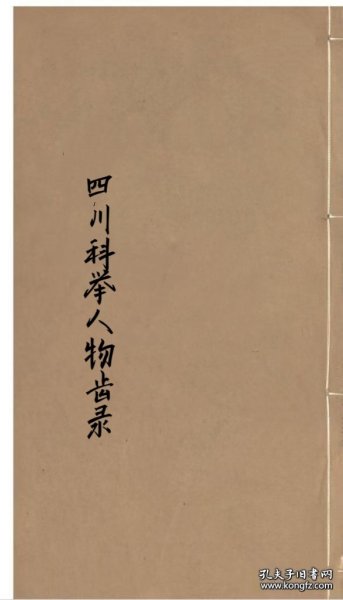 四川科举人物齿录
孔夫子旧书网
www.kongfz.com